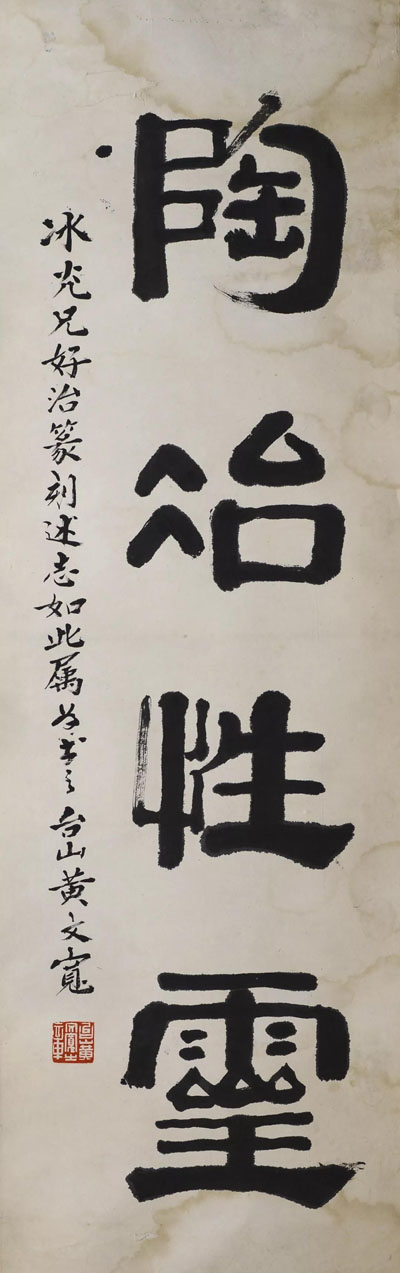 陶冶性靈
冰光兄好治篆刻述志如此属為書之台山黄文寬